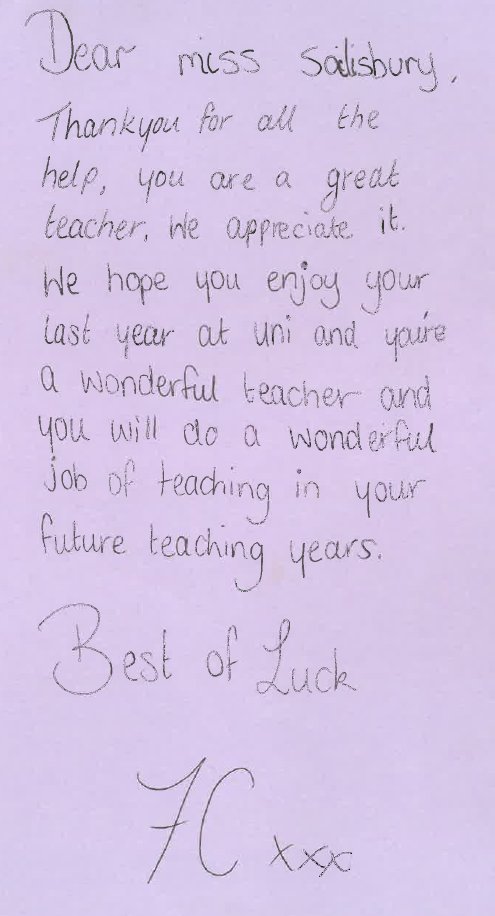 Dear miss Salisbury,
Thankyou for all the
help, you are a great
teacher. We appreciate it.
We hope you enjoy your
last year at uni and you're
a wonderful teacher and
you will do a wonderful
job of teaching in your
future teaching years.
Best of Luck
7C xxx